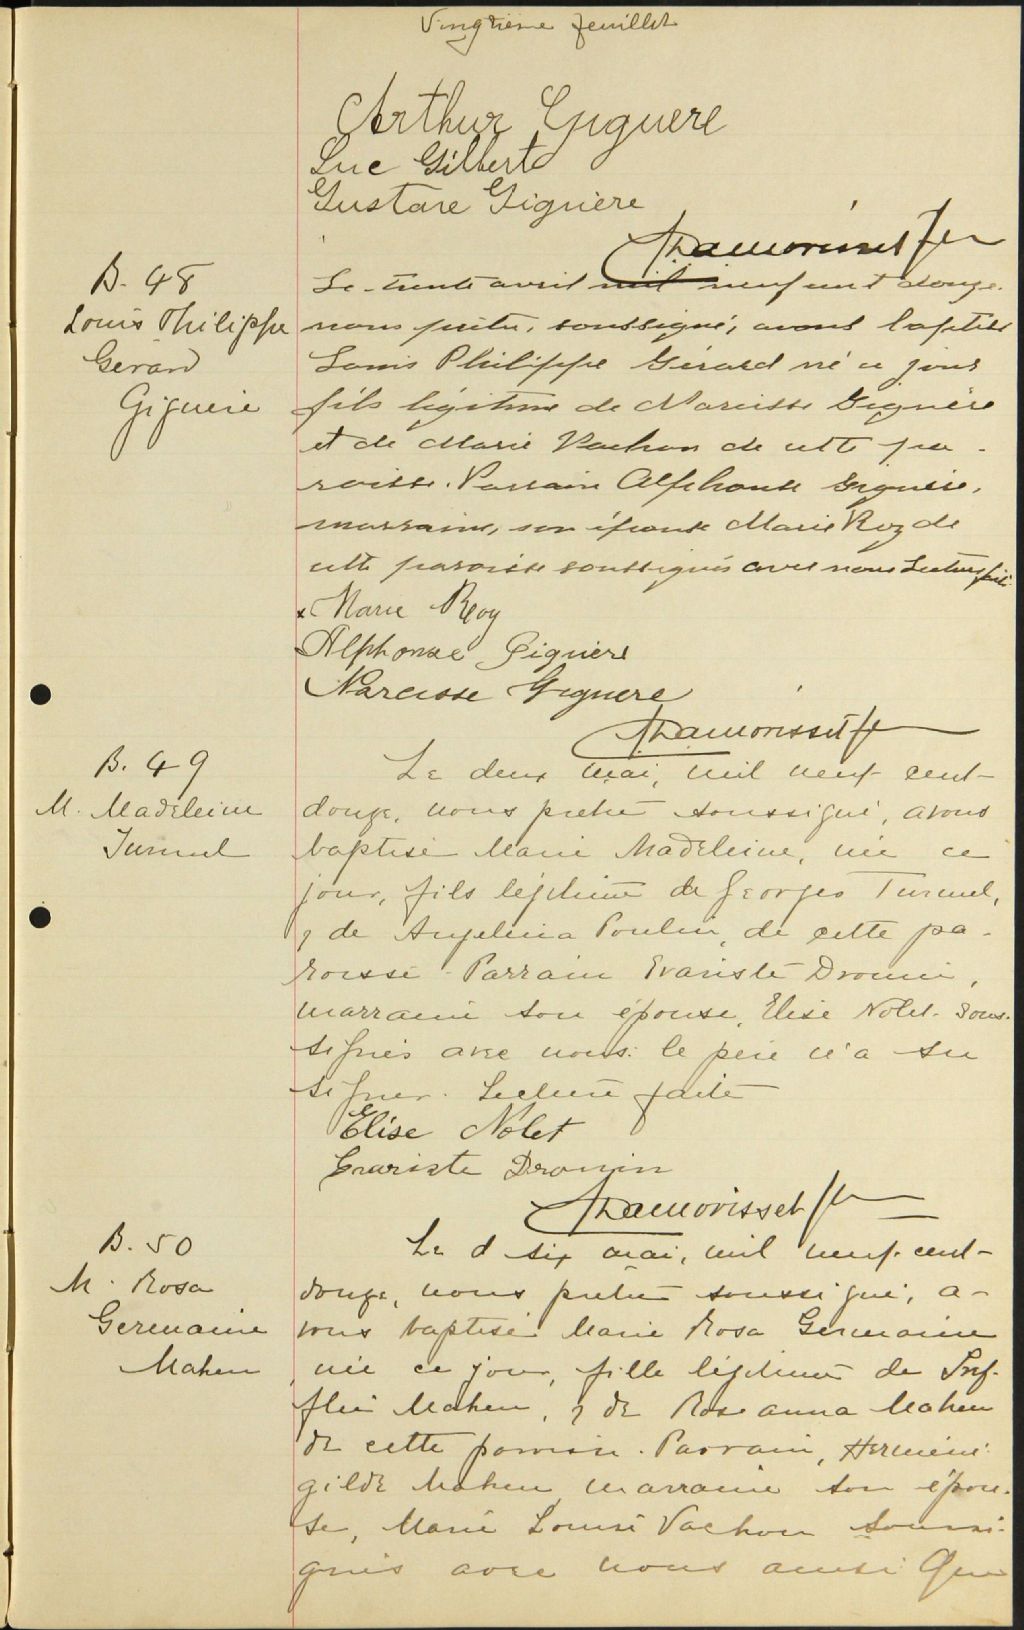 Vingtième feuillet
Arthur Giguere
Luc Gilbert
Gustave Giguère
B. 48
Louis Philippe
Gerard
Giguère
Le trente avril mil neuf cent douze
nous prêtre, soussigné, avons baptisé
Louis Philippe Gérard né ce jour
fils légitime de Narcisse Giguère
et de Marie Vachon de cette pa-
roisse. Parrain Alphonse Giguère,
marraine, son épouse Marie Roy de
cette paroisse soussignés avec nous Lecture faite
x Marie Roy
Alphonse Giguere
Narcisse Giguere
B. 49
M. Madeleine
Turmel
Le deux mai, mil neuf cent-
douze, nous prêtre soussigné, avons
baptisé Marie Madeleine, née ce
jour, fils légitime de Georges Turmel,
& de Angelina Poulin, de cette pa-
roisse. Parrain Evariste Drouin,
marraine son épouse, Elise Nolet. Sous-
signés avec nous: le père n'a su
signer. Lecture faite
Elise Nolet
Evariste Drouin
B. 50
M. Rosa
Germaine
Maheu
Le d six mai, mil neuf cent-
douze, nous prêtre soussigné, a-
vons baptisé Marie Rosa Germaine
née ce jour, fille légitime de
Maheu, & de Rose anna Maheu
de cette paroisse. Parrain, Herméné-
gilde Maheu, marraine son épou-
se, Marie Louise Vachon soussi-
gnés avec nous ainsi que